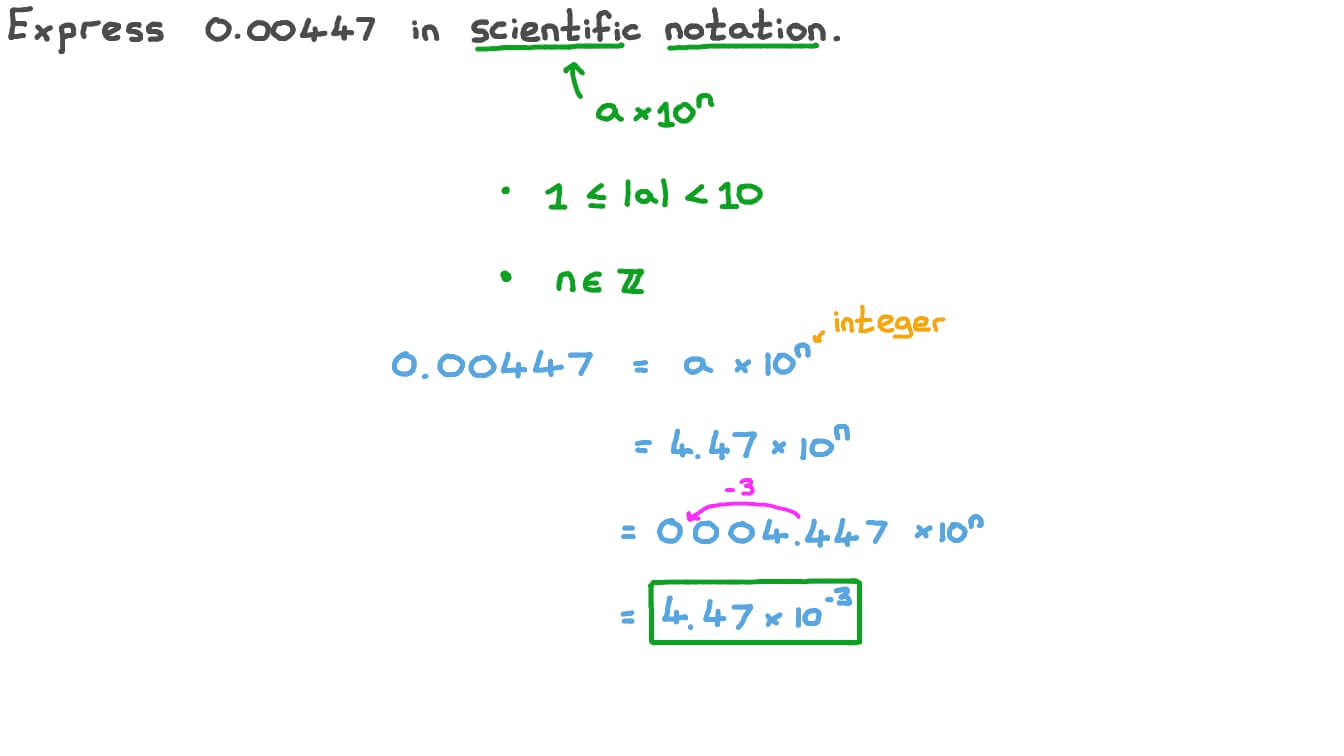 Express 0.00447 in scientific notation.
a × 10ⁿ
• 1 ≤ |a| < 10
• n ∈ ℤ
integer
0.00447 = a × 10ⁿ
= 4.47 × 10ⁿ
-3
= 0004.447 × 10ⁿ
= 4.47 × 10⁻³